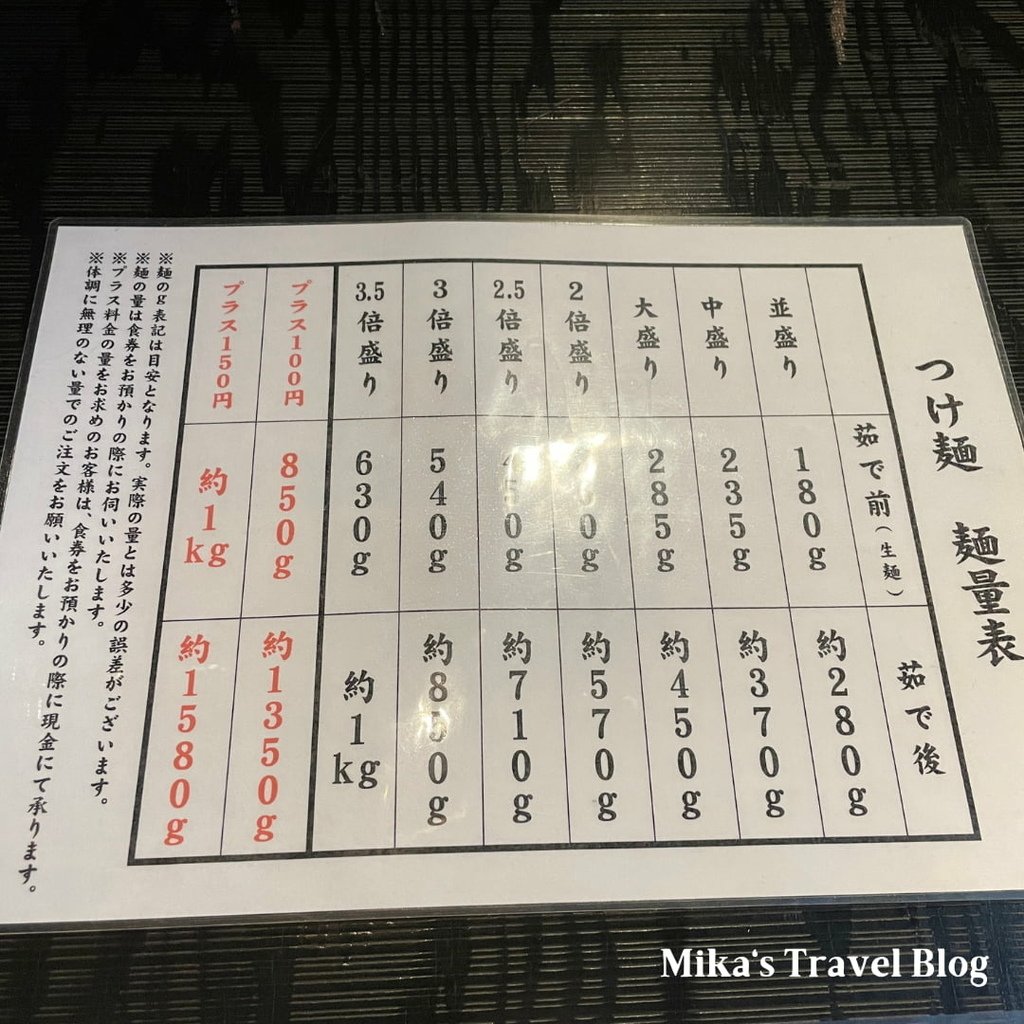 つけ麺 麺量表
茹で前(生麺)
茹で後
並盛り
180g
約280g
中盛り
235g
約370g
大盛り
285g
約450g
2倍盛り
約570g
2.5倍盛り
約710g
3倍盛り
540g
約850g
3.5倍盛り
630g
約1kg
プラス100円
850g
約1350g
プラス150円
約1kg
約1580g
※麺のg表記は目安となります。実際の量とは多少の誤差がございます。
※麺の量は食券をお預かりの際にお伺いいたします。
※プラス料金の量をお求めのお客様は、食券をお預かりの際に現金にて承ります。
※体調に無理のない量でのご注文をお願いいたします。
Mika's Travel Blog